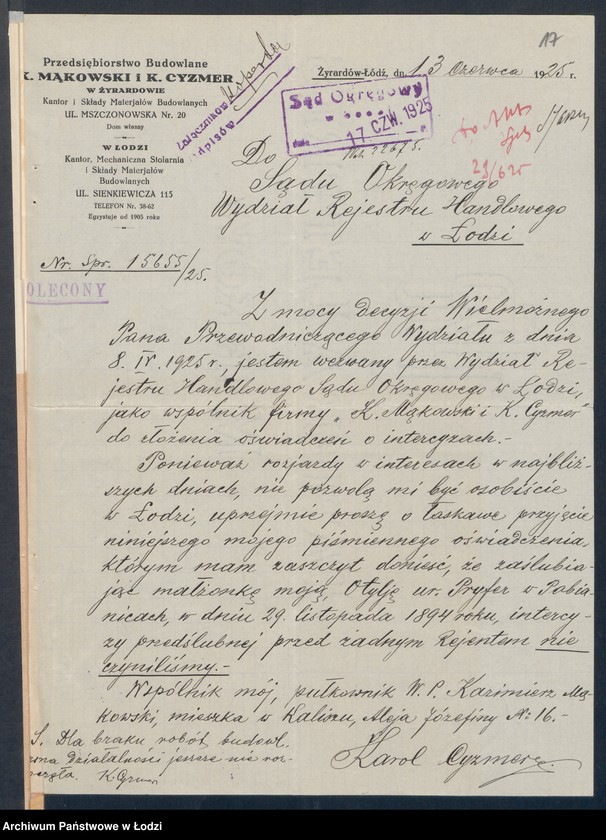 17
Przedsiębiorstwo Budowlane
K. MĄKOWSKI i K. CYZMER
W ŻYRARDOWIE
Kantor i Składy Materjałów Budowlanych
UL. MSZCZONOWSKA Nr. 20
Dom własny
W ŁODZI
Kantor, Mechaniczna Stolarnia
i Składy Materjałów
Budowlanych
UL. SIENKIEWICZA 115
TELEFON Nr. 38-62
Egzystuje od 1905 roku
Załączników
Odpisów
Żyrardów-Łódź, dn. 13 Czerwca 1925 r.
Sąd Okręgowy
w Łodzi
17 CZW. 1925
do Akt
29/6 25
Do
Sądu Okręgowego
Wydział Rejestru Handlowego
w Łodzi
Nr. Spr. 15655/25.
POLECONY
Z mocy decyzji Wielmożnego
Pana Przewodniczącego Wydziału z dnia
8. IV. 1925 r., jestem wezwany przez Wydział Re-
jestru Handlowego Sądu Okręgowego w Łodzi,
jako wspólnik firmy „K. Mąkowski i K. Cyzmer"
do złożenia oświadczeń o intercyzach.-
Ponieważ rozjazdy w interesach w najbliż-
szych dniach, nie pozwolą mi być osobiście
w Łodzi, uprzejmie proszę o łaskawe przyjęcie
niniejszego mojego piśmiennego oświadczenia,
którym mam zaszczyt donieść, że zaślubia-
jąc małżonkę moją, Otylję ur. Pryfer w Pabia-
nicach, w dniu 29. listopada 1894 roku, intercy-
zy przedślubnej przed żadnym Rejentem nie
czyniliśmy.-
Wspólnik mój, pułkownik W. P. Kazimierz Mą-
kowski, mieszka w Kaliszu, Aleja Józefiny № 16.-
S. Dla braku robót budowl.
działalności jeszcze nie roz-
K. Cyzmer
Karol Cyzmer
Archiwum Państwowe w Łodzi